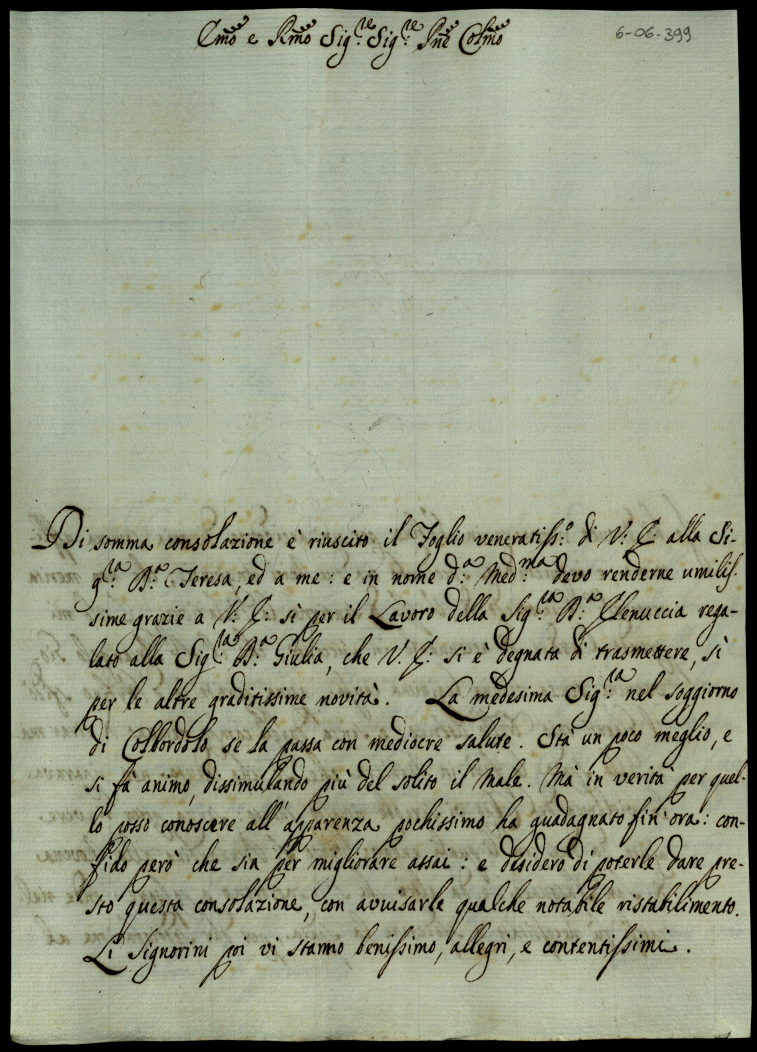 Emo e Rmo Sig.re Sig.re Pne Colmo
6-06-399
Di somma consolazione è riuscito il Foglio veneratiss.o di V: E: alla Si-
g.ra B.a Teresa, ed a me: e in nome d.a Med.ma devo renderne umilis-
sime grazie a V: E: sì per il Lavoro della Sig.ra B.a Elenuccia rega-
lato alla Sig.ra B.a Giulia, che V. E: si è degnata di trasmettere, sì
per le altre graditissime novità. La medesima Sig.ra nel soggiorno
di Colbordolo se la passa con mediocre salute. Stà un poco meglio, e
si fà animo, dissimulando più del solito il Male. Mà in verità per quel-
lo posso conoscere all'apparenza pochissimo ha guadagnato fin'ora: con-
fido però che sia per migliorare assai: e desidero di poterle dare pre-
sto questa consolazione, con avvisarle qualche notabile ristabilimento.
Li Signorini poi vi stanno benissimo, allegri, e contentissimi.